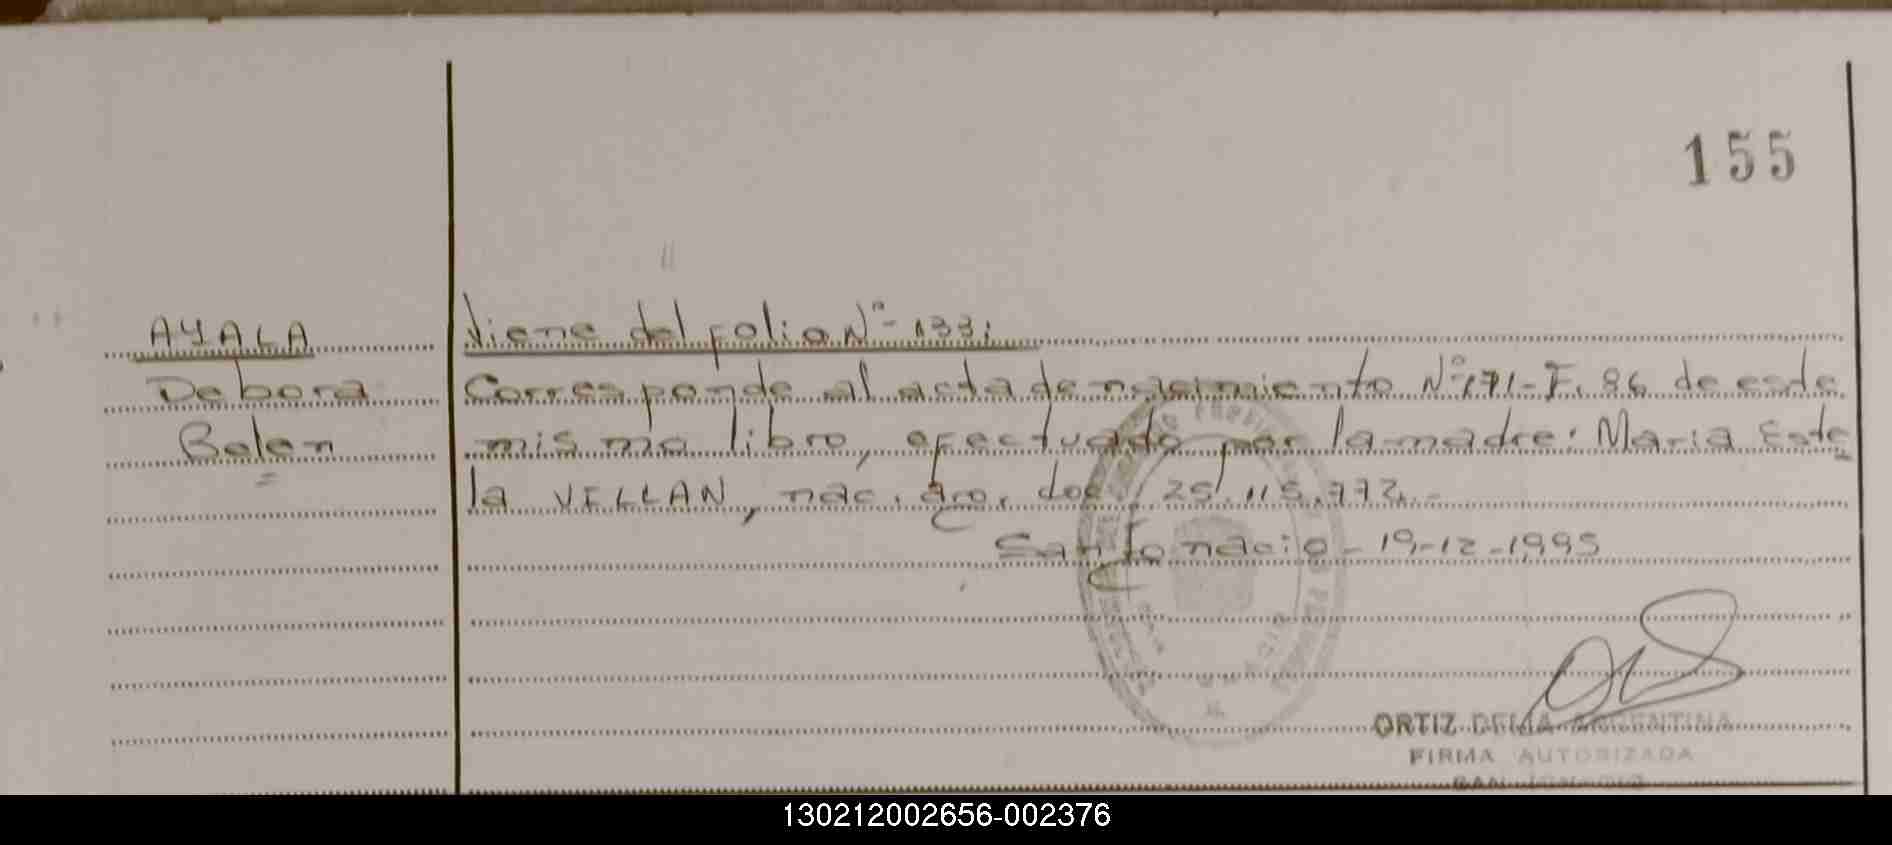 155
AYALA
Debora
Belen
Viene del folio Nº- 133:
Corresponde al acta de nacimiento Nº171-F. 86 de este
mismo libro, efectuado por la madre: Maria Este
la VELLAN, nac. arg. doc. 25.115.772.-
San Ignacio - 19-12-1995
ORTIZ DELIA ARGENTINA
FIRMA AUTORIZADA
SAN IGNACIO
130212002656-002376